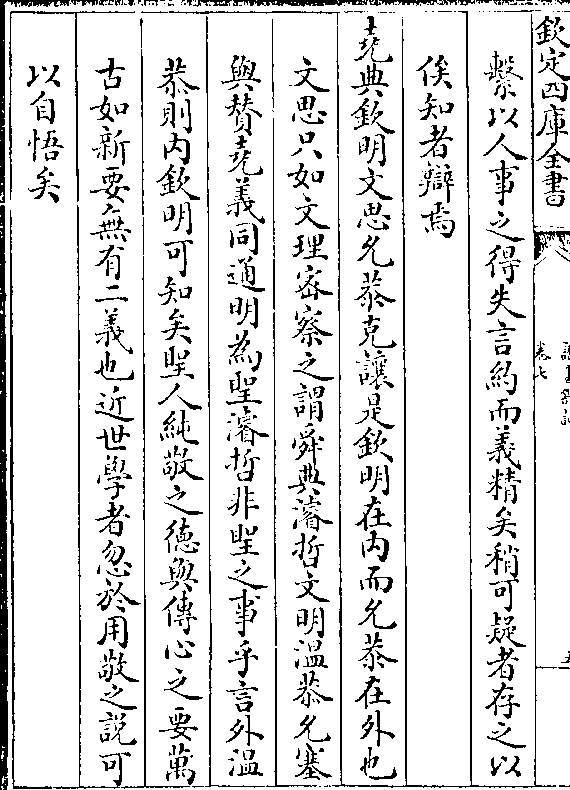 欽定四庫全書
卷七
繫以人事之得失言約而義精矣稍可疑者存之以
俟知者辯焉
堯典欽明文思允恭克讓是欽明在内而允恭在外也
文思只如文理宻察之謂舜典濬哲文明溫恭允塞
與賛堯義同通明為聖濬哲非聖之事乎言外溫
恭則内欽明可知矣聖人純敬之徳與傳心之要萬
古如新要無有二義也近世學者忽於用敬之説可
以自悟矣